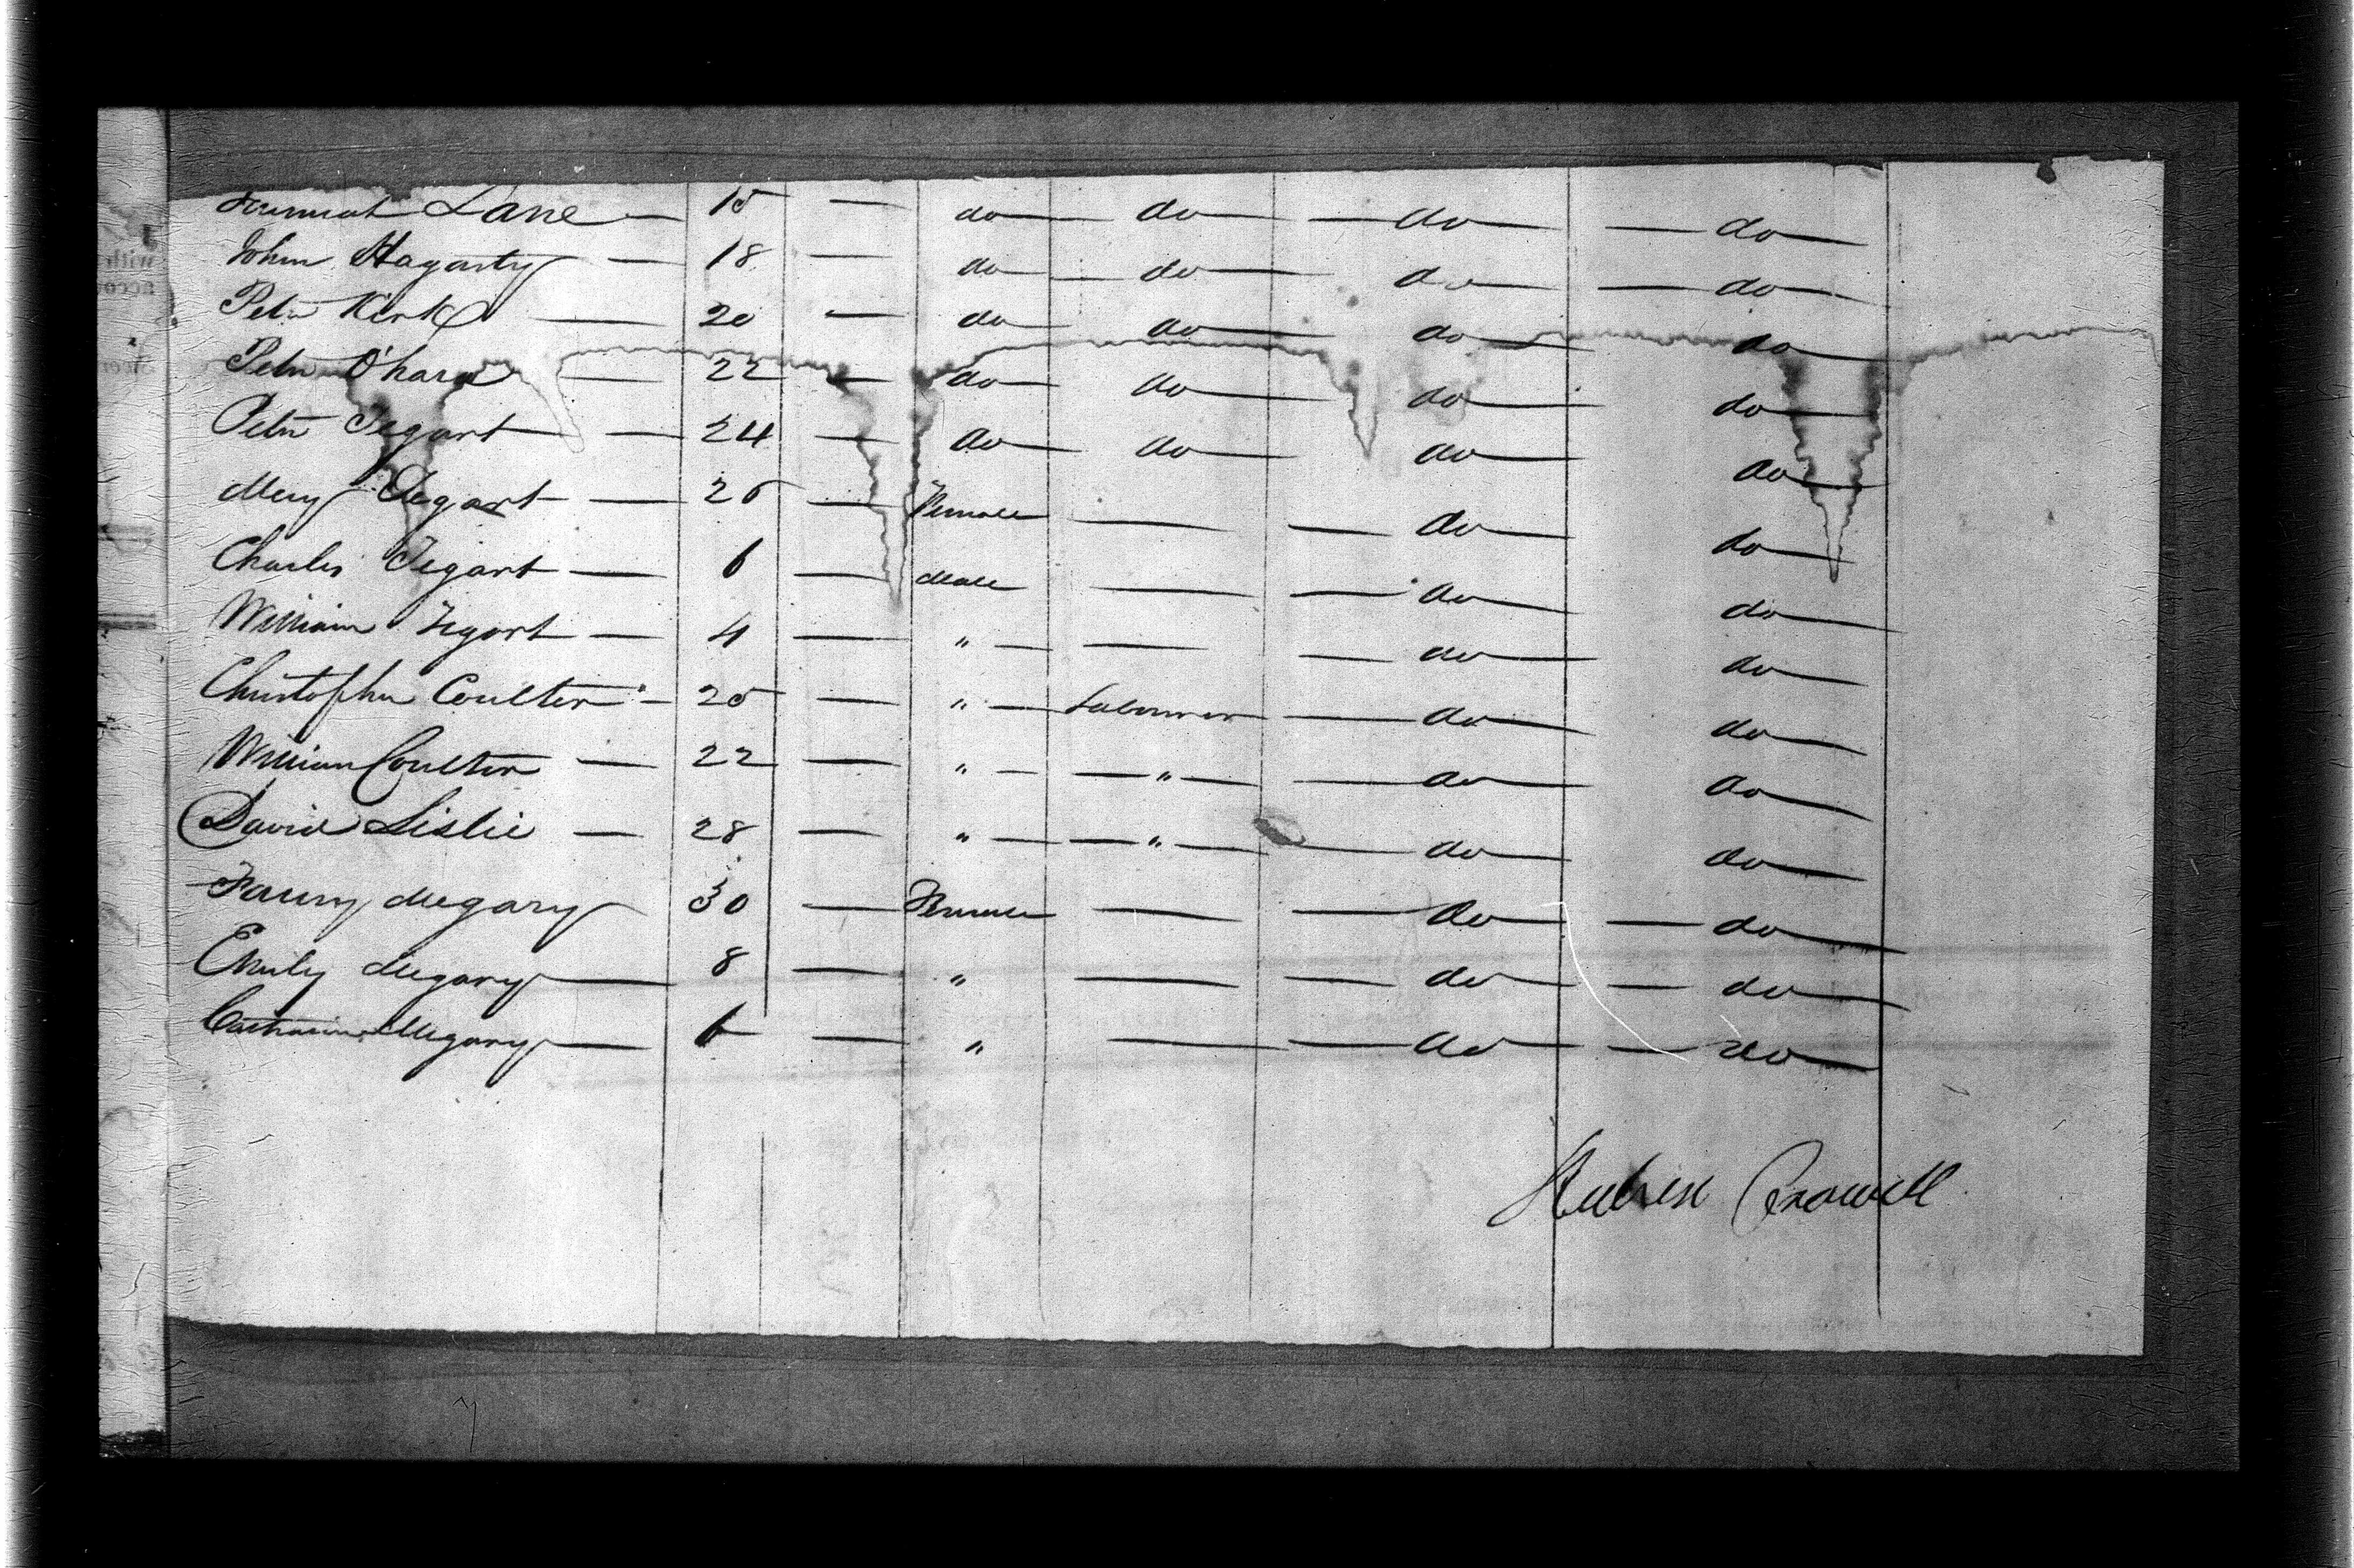 Lane — 15 — do — do — do — do
John Hagarty — 18 — do — do — do — do
Peter Kirk — 20 — do — do — do — do
Peter O'hara — 22 — do — do — do — do
Peter Tegart — 24 — do — do — do — do
Mery Tegart — 26 — Female — — do — do
Charles Tegart — 6 — Male — — do — do
William Tegart — 4 — " — — do — do
Christopher Coulter — 25 — " — Labourer — do — do
William Coulter — 22 — " — " — do — do
David Leslie — 28 — " — " — do — do
Fanny Megary 30 — Female — — do — do
Emily Megary — 8 — " — — do — do
Catharine Megary — 6 — " — — do — do
Crowell